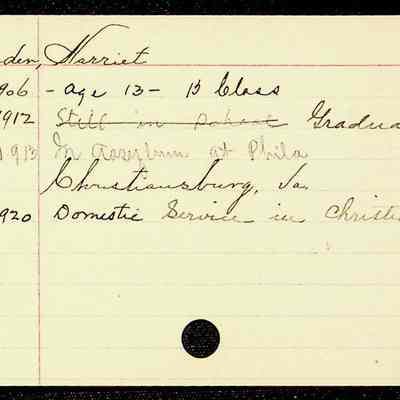 den, Harriet
906 - age 13 - B Class
1912 Still in school Gradua
1913 In Assylum at Phila
Christiansburg, Va.
920 Domestic Service in Christi